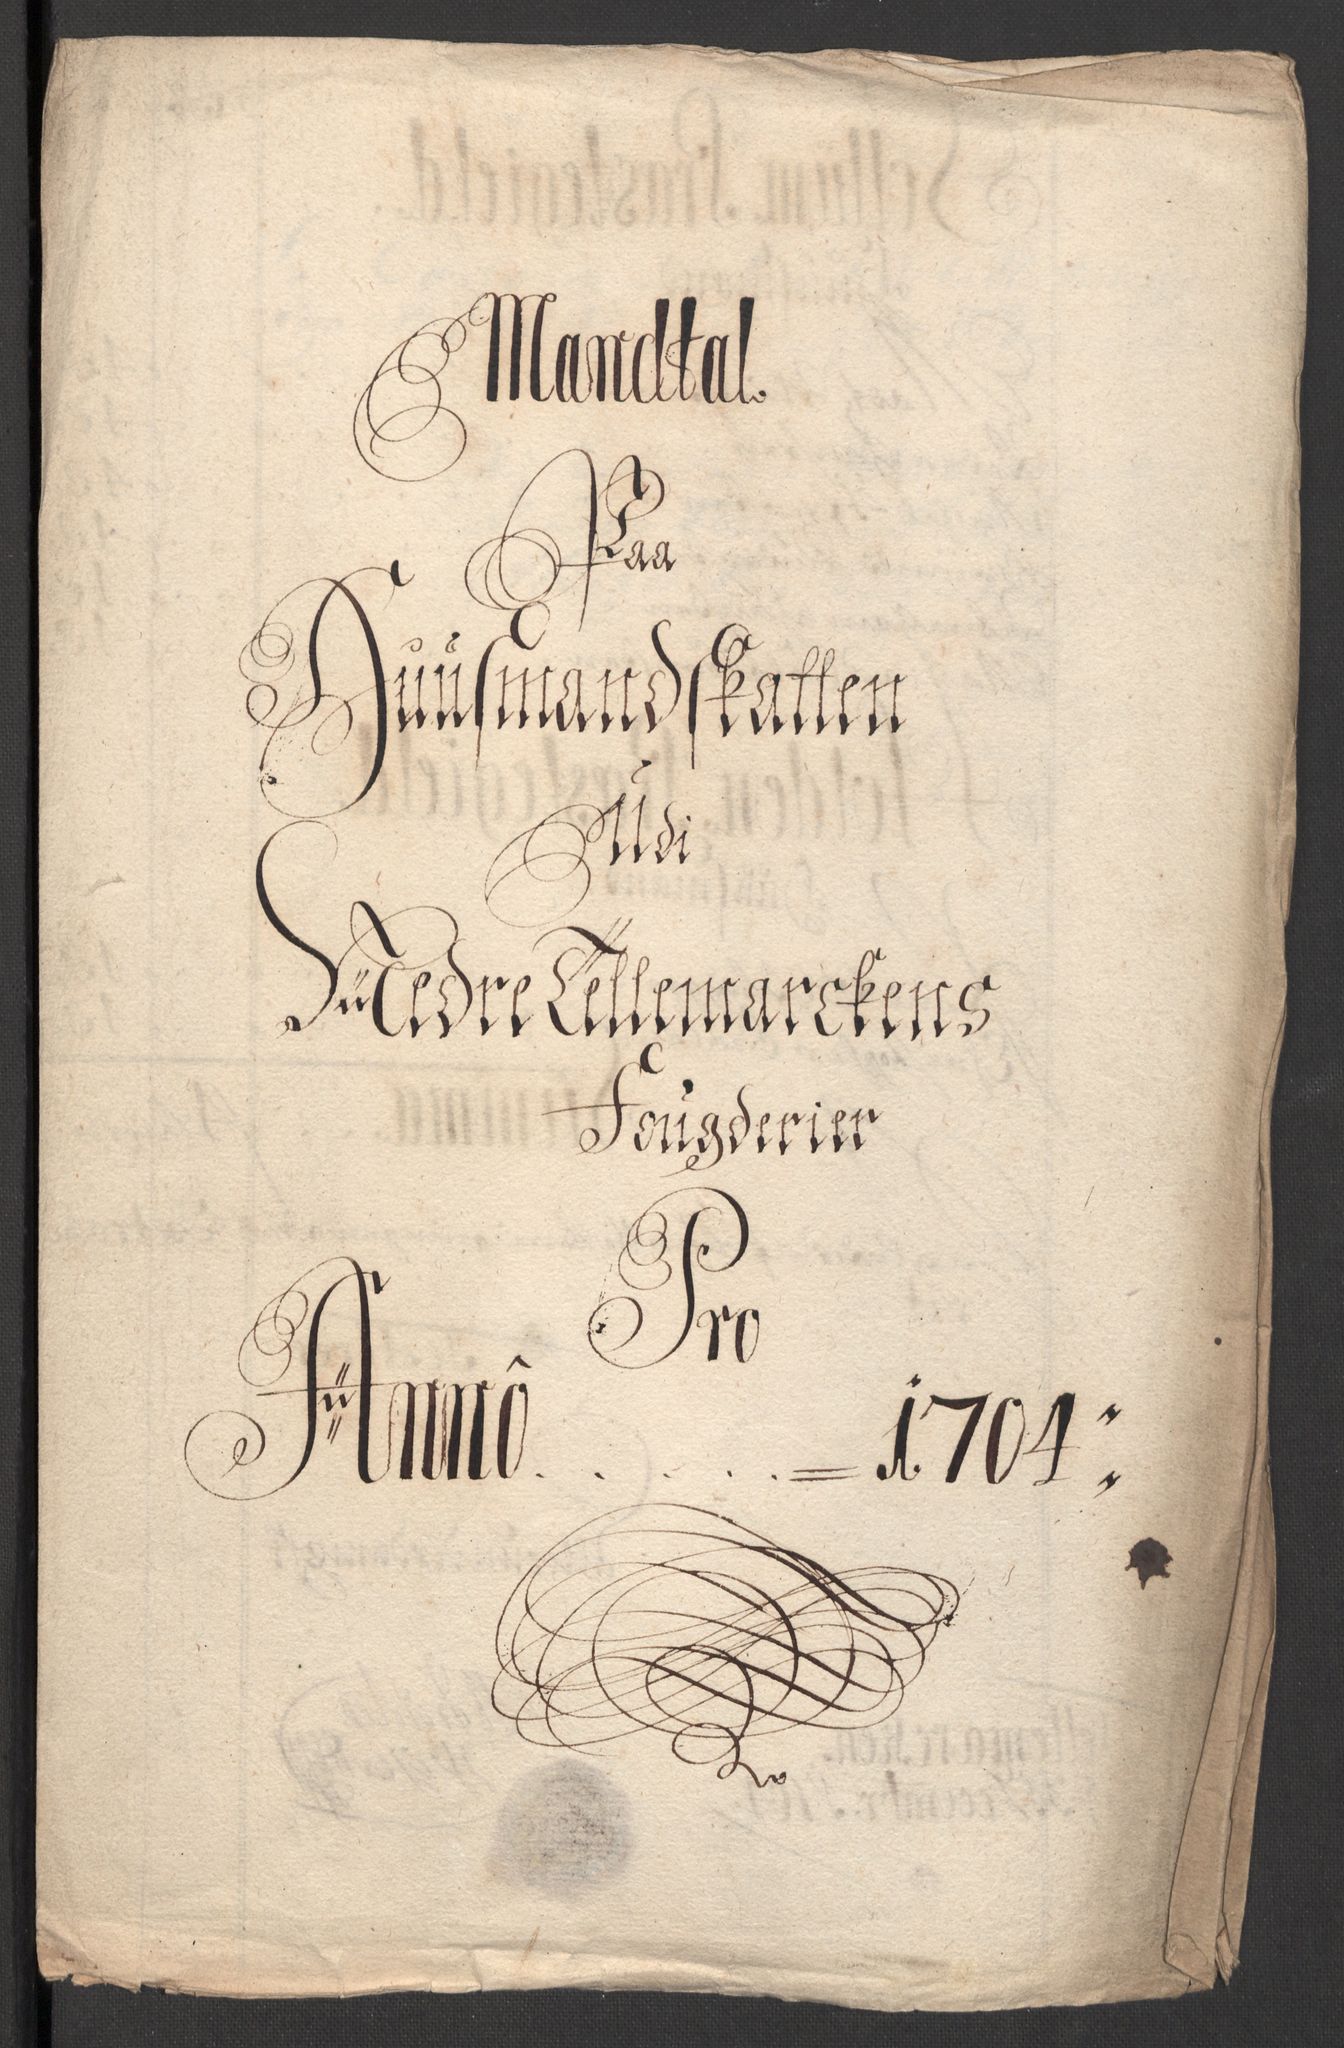 Mandtal.
Paa
Huusmandskatten
Udi
Nedre Tellemarckens
Fougderier
Pro
Annô . . . . . = 1704: